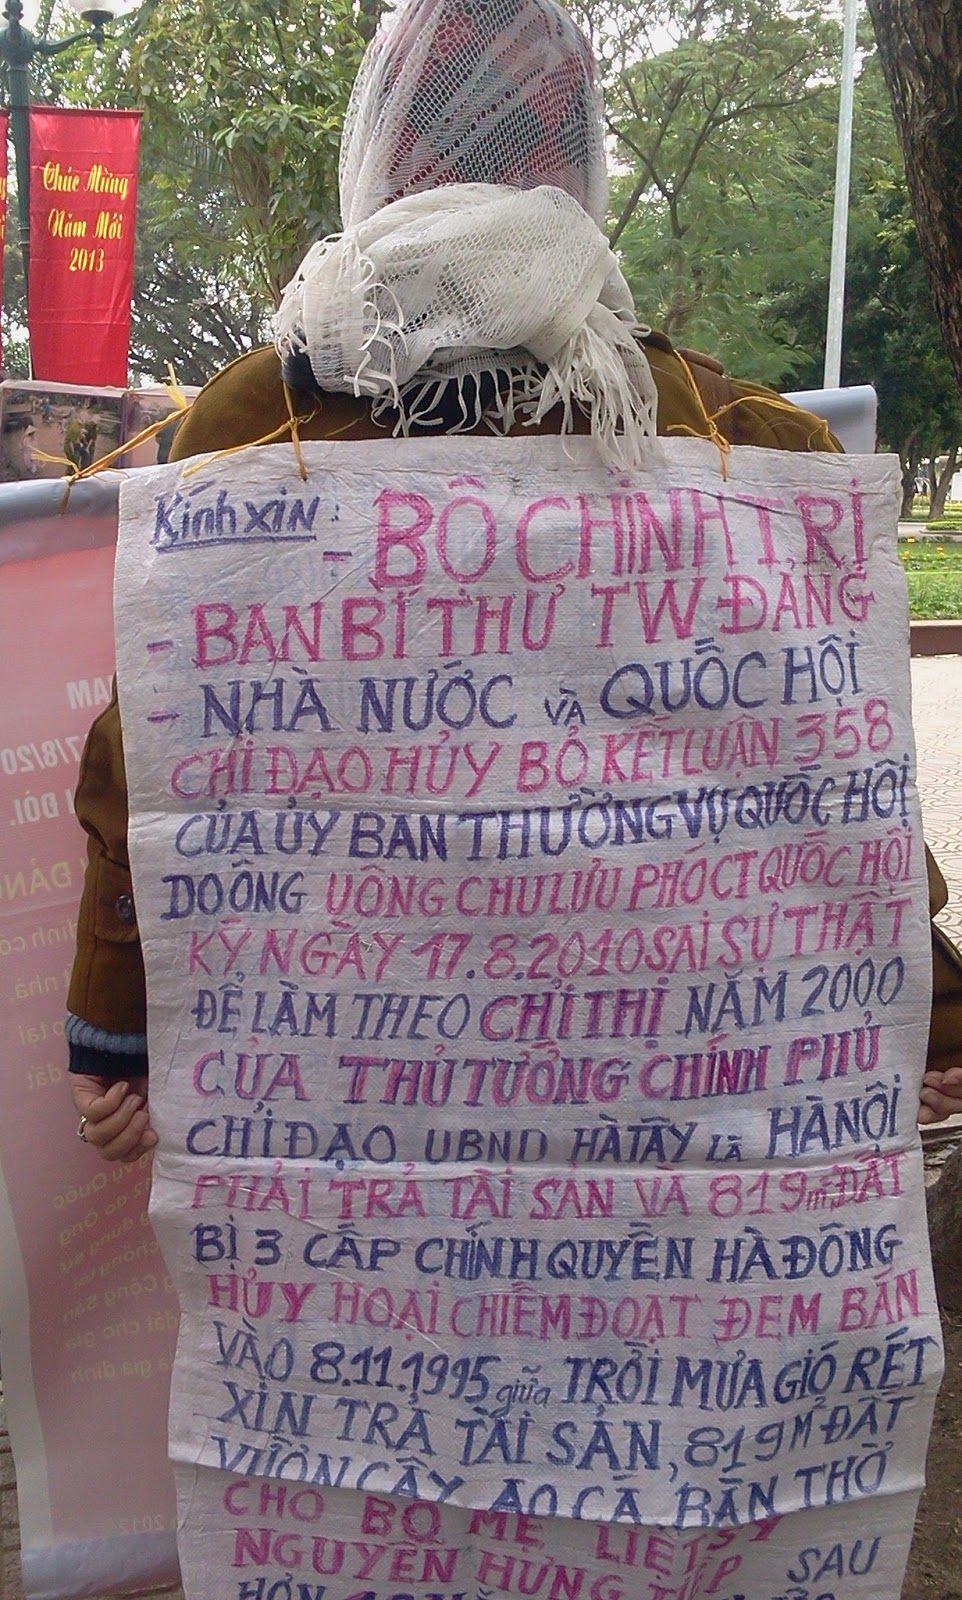 Chúc Mừng
Năm Mới
2013
Kính XIN:
- BÔ CHÍNH TRỊ
- BAN BÍ THƯ TW ĐẢNG
- NHÀ NƯỚC VÀ QUỐC HỘI
CHỈ ĐẠO HỦY BỎ KẾT LUẬN 358
CỦA ỦY BAN THƯỜNG VỤ QUỐC HỘI
DO ÔNG UÔNG CHU LƯU PHÓ CT QUỐC HỘI
KÝ NGÀY 17.8.2010 SAI SỰ THẬT
ĐỂ LÀM THEO CHỈ THỊ NĂM 2000
CỦA THỦ TƯỚNG CHÍNH PHỦ
CHỈ ĐẠO UBND HÀ TÂY LÀ HÀ NỘI
PHẢI TRẢ TÀI SẢN VÀ 819 m² ĐẤT
BỊ 3 CẤP CHÍNH QUYỀN HÀ ĐÔNG
HỦY HOẠI CHIẾM ĐOẠT ĐEM BÁN
VÀO 8.11.1995 giữa TRỜI MƯA GIÓ RÉT
XIN TRẢ TÀI SẢN, 819 M² ĐẤT
VƯỜN CÂY AO CÁ BÀN THỜ
CHO BỐ MẸ LIỆT SỸ
NGUYỄN HƯNG SAU
HƠN